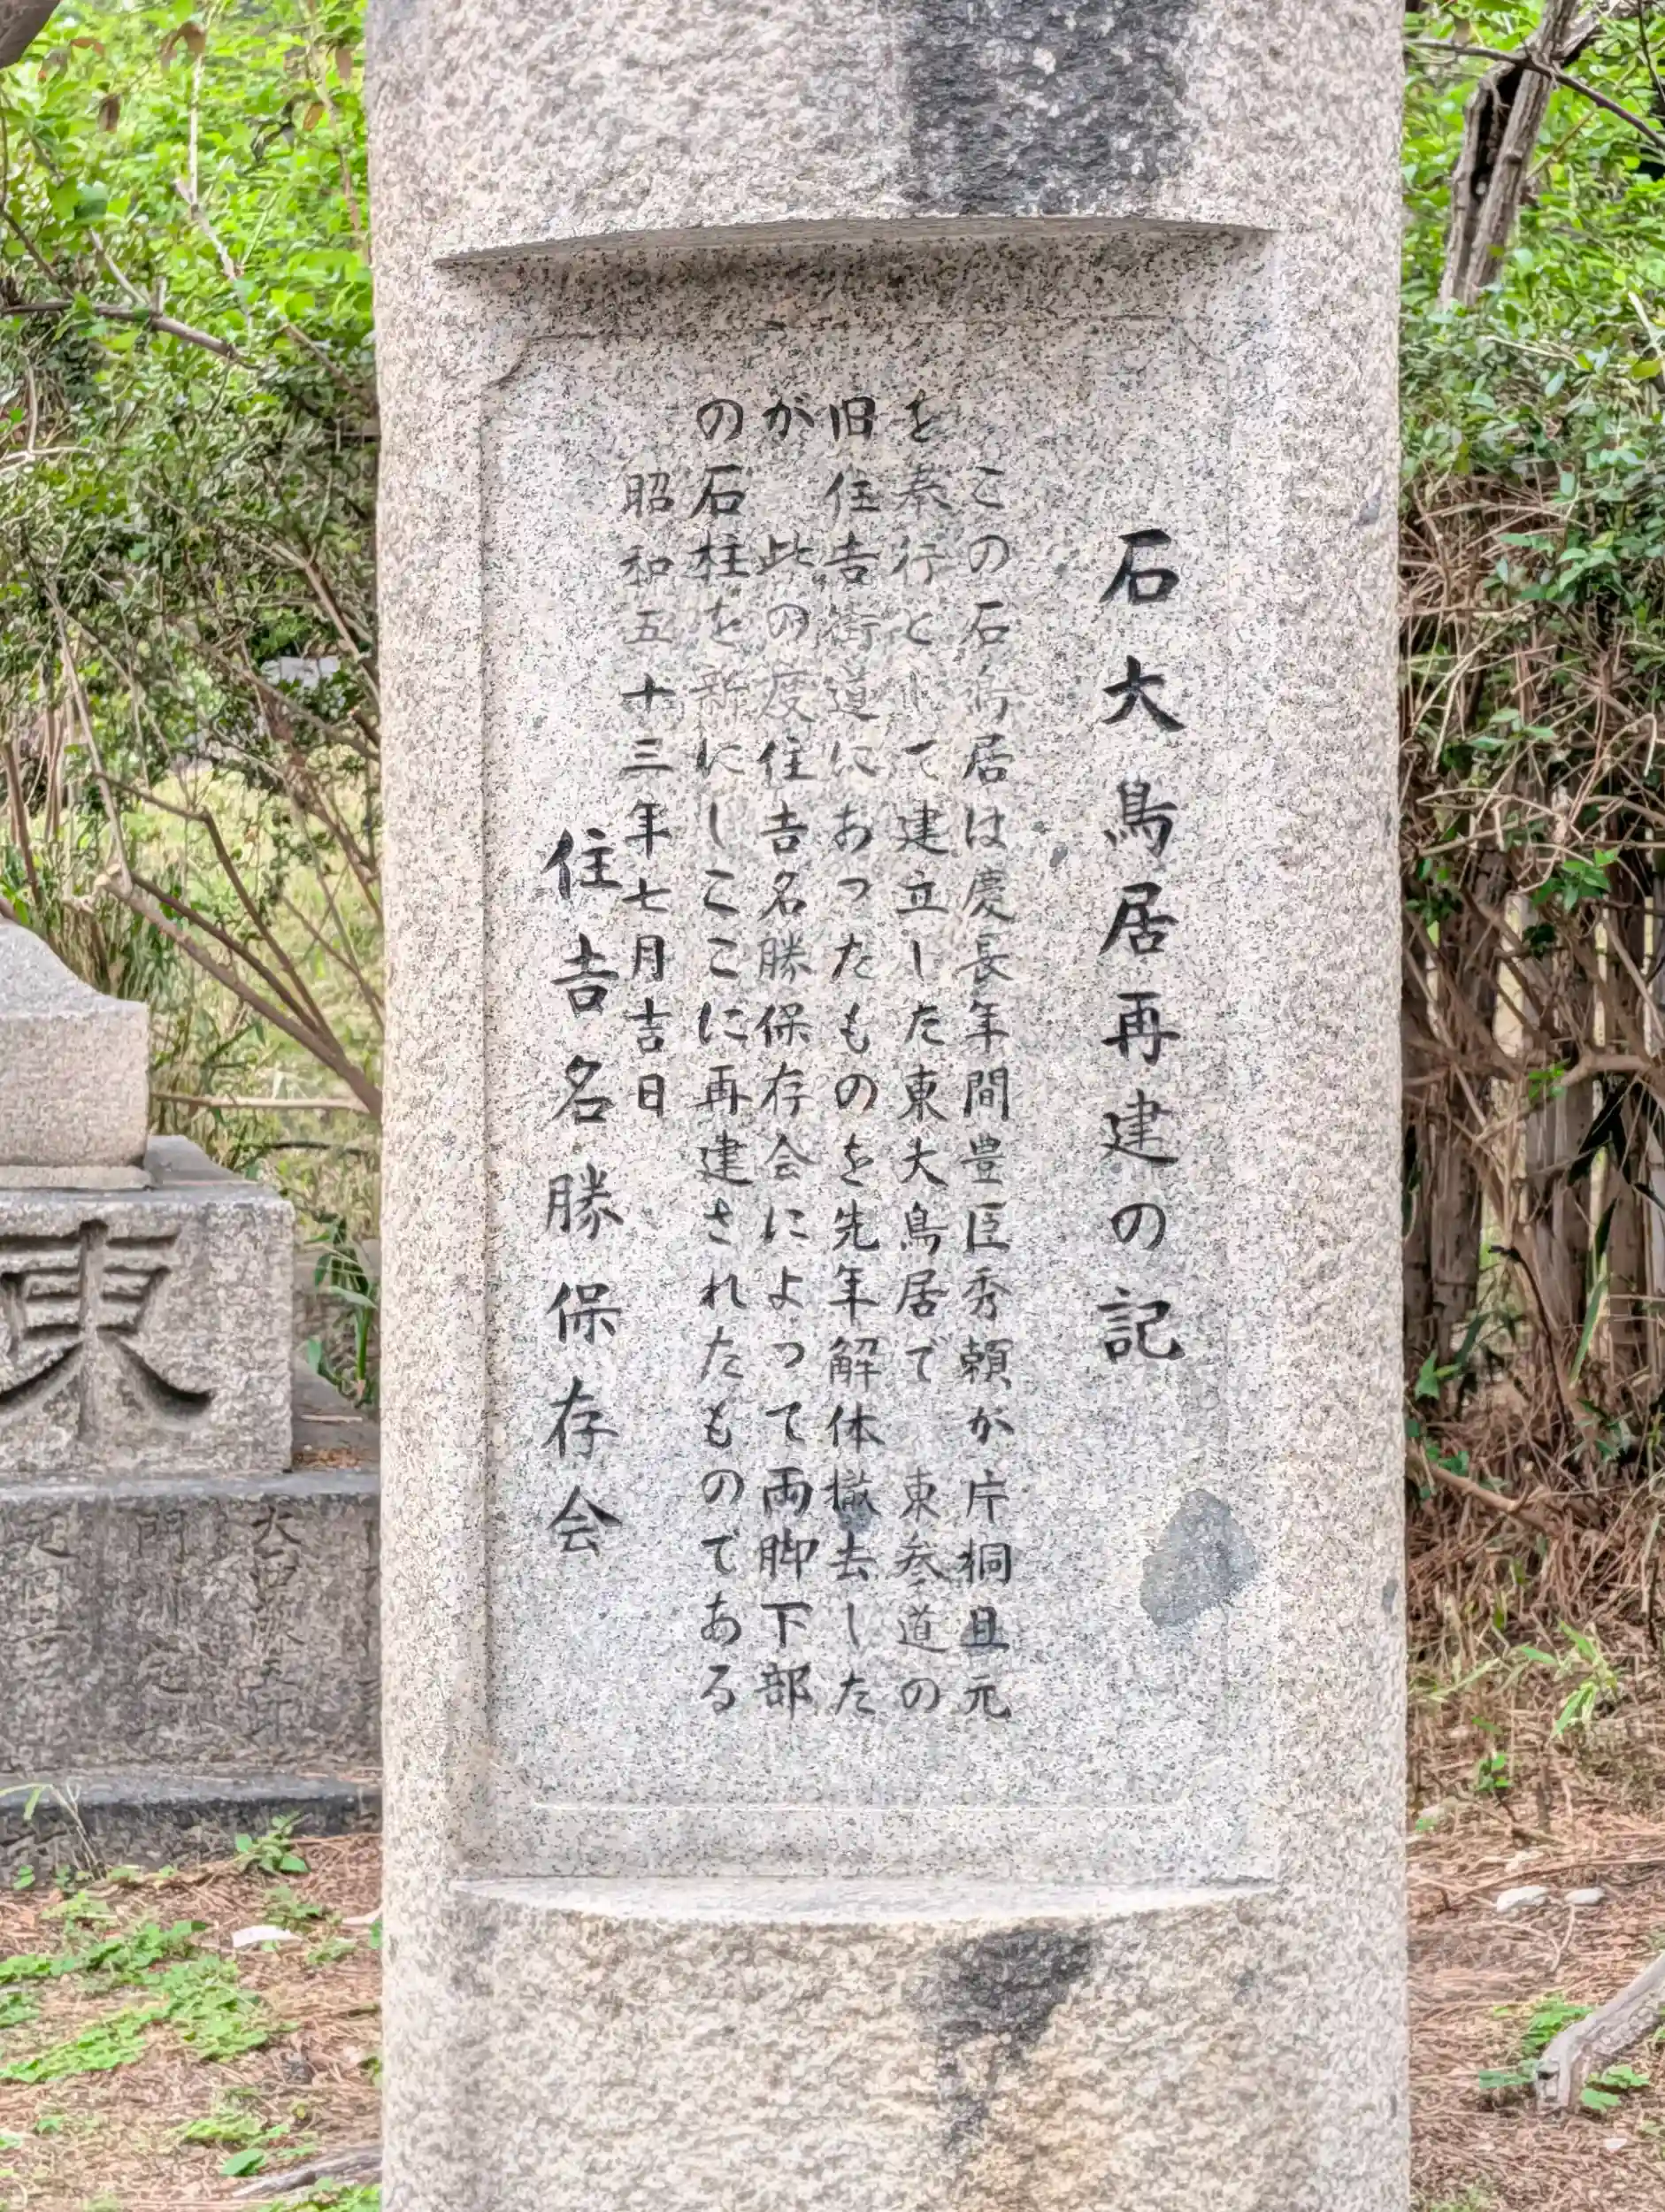 石大鳥居再建の記
この石鳥居は慶長年間豊臣秀頼が片桐且元
を奉行として建立した東大鳥居で 東参道の
旧住吉街道にあったものを先年解体撤去した
が 此の度住吉名勝保存会によって両脚下部
の石柱を新にしここに再建されたものである
昭和五十三年七月吉日
住吉名勝保存会
東